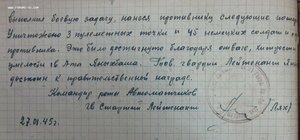 выполнил боевую задачу, нанося противнику следующие потери
Уничтожено 3 пулеметных точки и 45 немецких солдат
противника. Это было достигнуто благодаря отваге,
умелости гв. л-та Тов. гвардии Лейтенант
достоин к правительственной награде.
Командир роты Автоматчиков
гв Старший Лейтенант Лях)
27.01.45г.